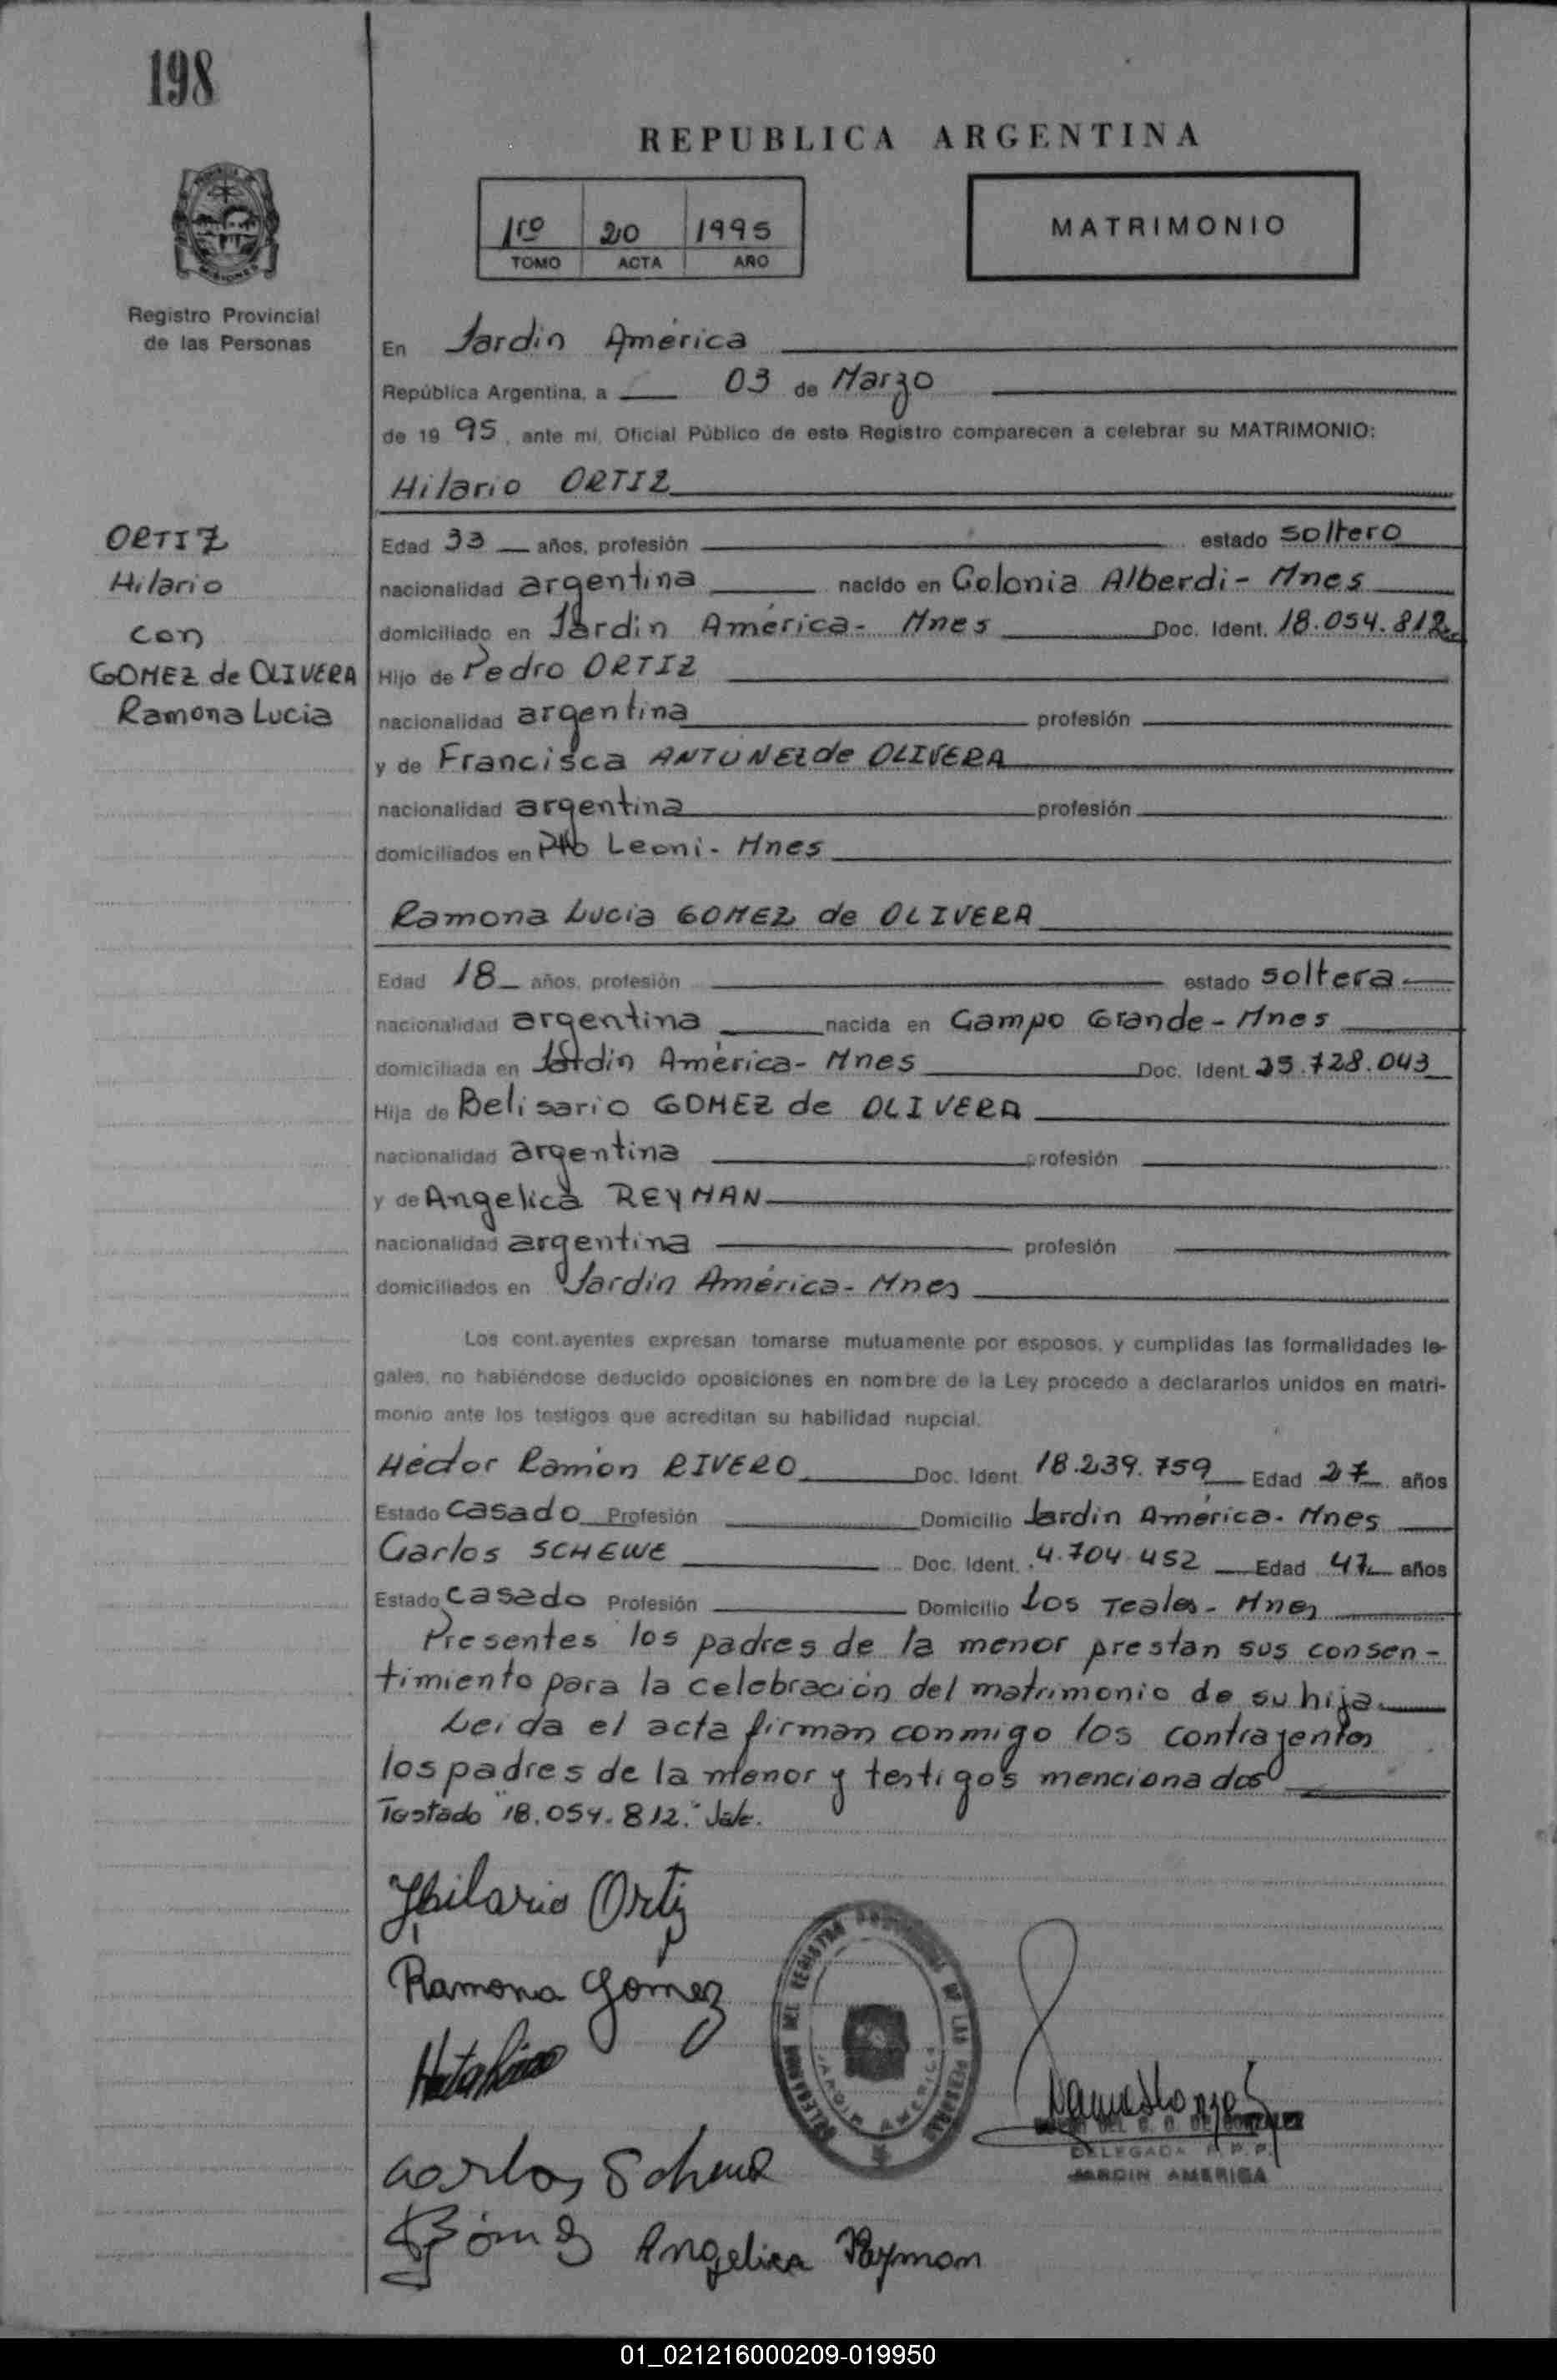 198
REPUBLICA ARGENTINA
1ro 20 1995
TOMO ACTA AÑO
MATRIMONIO
Registro Provincial
de las Personas
En Jardin América
República Argentina, a 03 de Marzo
de 1995, ante mí, Oficial Público de este Registro comparecen a celebrar su MATRIMONIO:
Hilario ORTIZ
ORTIZ
Hilario
con
GOMEZ de OLIVERA
Ramona Lucia
Edad 33 años, profesión estado soltero
nacionalidad argentina nacido en Colonia Alberdi - Mnes
domiciliado en Jardin América - Mnes Doc. Ident. 18.054.812
Hijo de Pedro ORTIZ
nacionalidad argentina profesión
y de Francisca ANTUNEZ de OLIVERA
nacionalidad argentina profesión
domiciliados en Pto Leoni - Mnes
Ramona Lucia GOMEZ de OLIVERA
Edad 18 años, profesión estado soltera
nacionalidad argentina nacida en Campo Grande - Mnes
domiciliada en Jardin América - Mnes Doc. Ident. 25.728.043
Hija de Belisario GOMEZ de OLIVERA
nacionalidad argentina profesión
y de Angelica REYMAN
nacionalidad argentina profesión
domiciliados en Jardin América - Mnes
Los cont.ayentes expresan tomarse mutuamente por esposos, y cumplidas las formalidades le-
gales, no habiéndose deducido oposiciones en nombre de la Ley procedo a declararlos unidos en matri-
monio ante los testigos que acreditan su habilidad nupcial.
Héctor Ramón RIVERO Doc. Ident. 18.239.759 Edad 27 años
Estado casado Profesión Domicilio Jardin América - Mnes
Carlos SCHEWE Doc. Ident. 4.704.452 Edad 47 años
Estado casado Profesión Domicilio Los Teales - Mnes
Presentes los padres de la menor prestan sus consen-
timiento para la celebración del matrimonio de su hija.
Leida el acta firman conmigo los contrayentes
los padres de la menor y testigos mencionados
Testado "18.054.812." Vale.
Hilario Ortiz
Ramona Gómez
Carlos Schewe
Gómez Angelica Reyman
DELEGACION DEL REGISTRO PROVINCIAL DE LAS PERSONAS
JARDIN AMERICA
DEL C. D. DE GONZALEZ
DELEGADA R. P. P.
JARDIN AMERICA
01_021216000209-019950